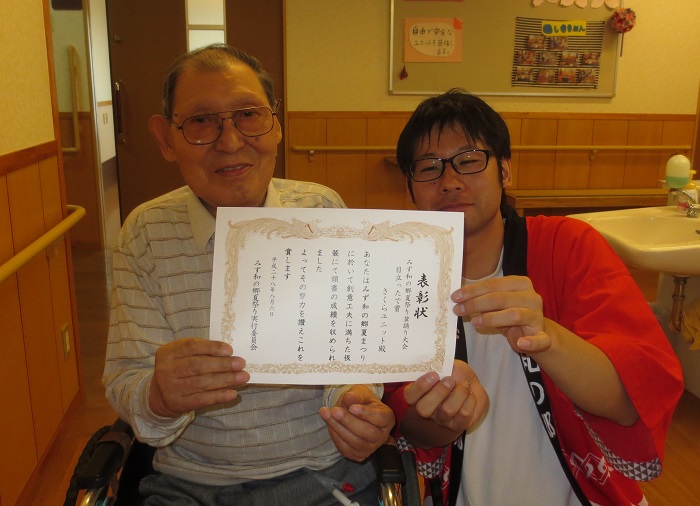 表彰状
みず和の郷夏祭り盆踊り大会
目立ったで賞
さくらユニット殿
あなたはみず和の郷夏まつり
に於いて創意工夫に満ちた仮
装にて頭書の成績を収められ
ました
よってその努力を讃えこれを
賞します
平成二十八年八月六日
みず和の郷夏祭り実行委員会
自由で安全な
ユニットを目指し
ます!